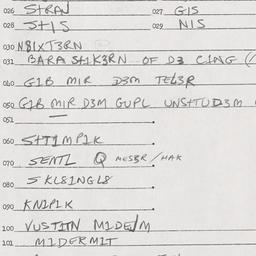 026 STRAN 027 GIS
028 STIS 029 NIS
030 N81XT3RN
031 BARA SH1K3RN OF D3 C1NG
040 G1B MIR D3M TEL3R
050 G1B MIR D3M GUPL UNSHTUD3M
051
060 SHTIMP1K
070 SENTL Q MES3R/HAK
080 5 KL81NGL8
090 KNIP1K
100 VUSTITN M1DE/M
101 M1DERM1T